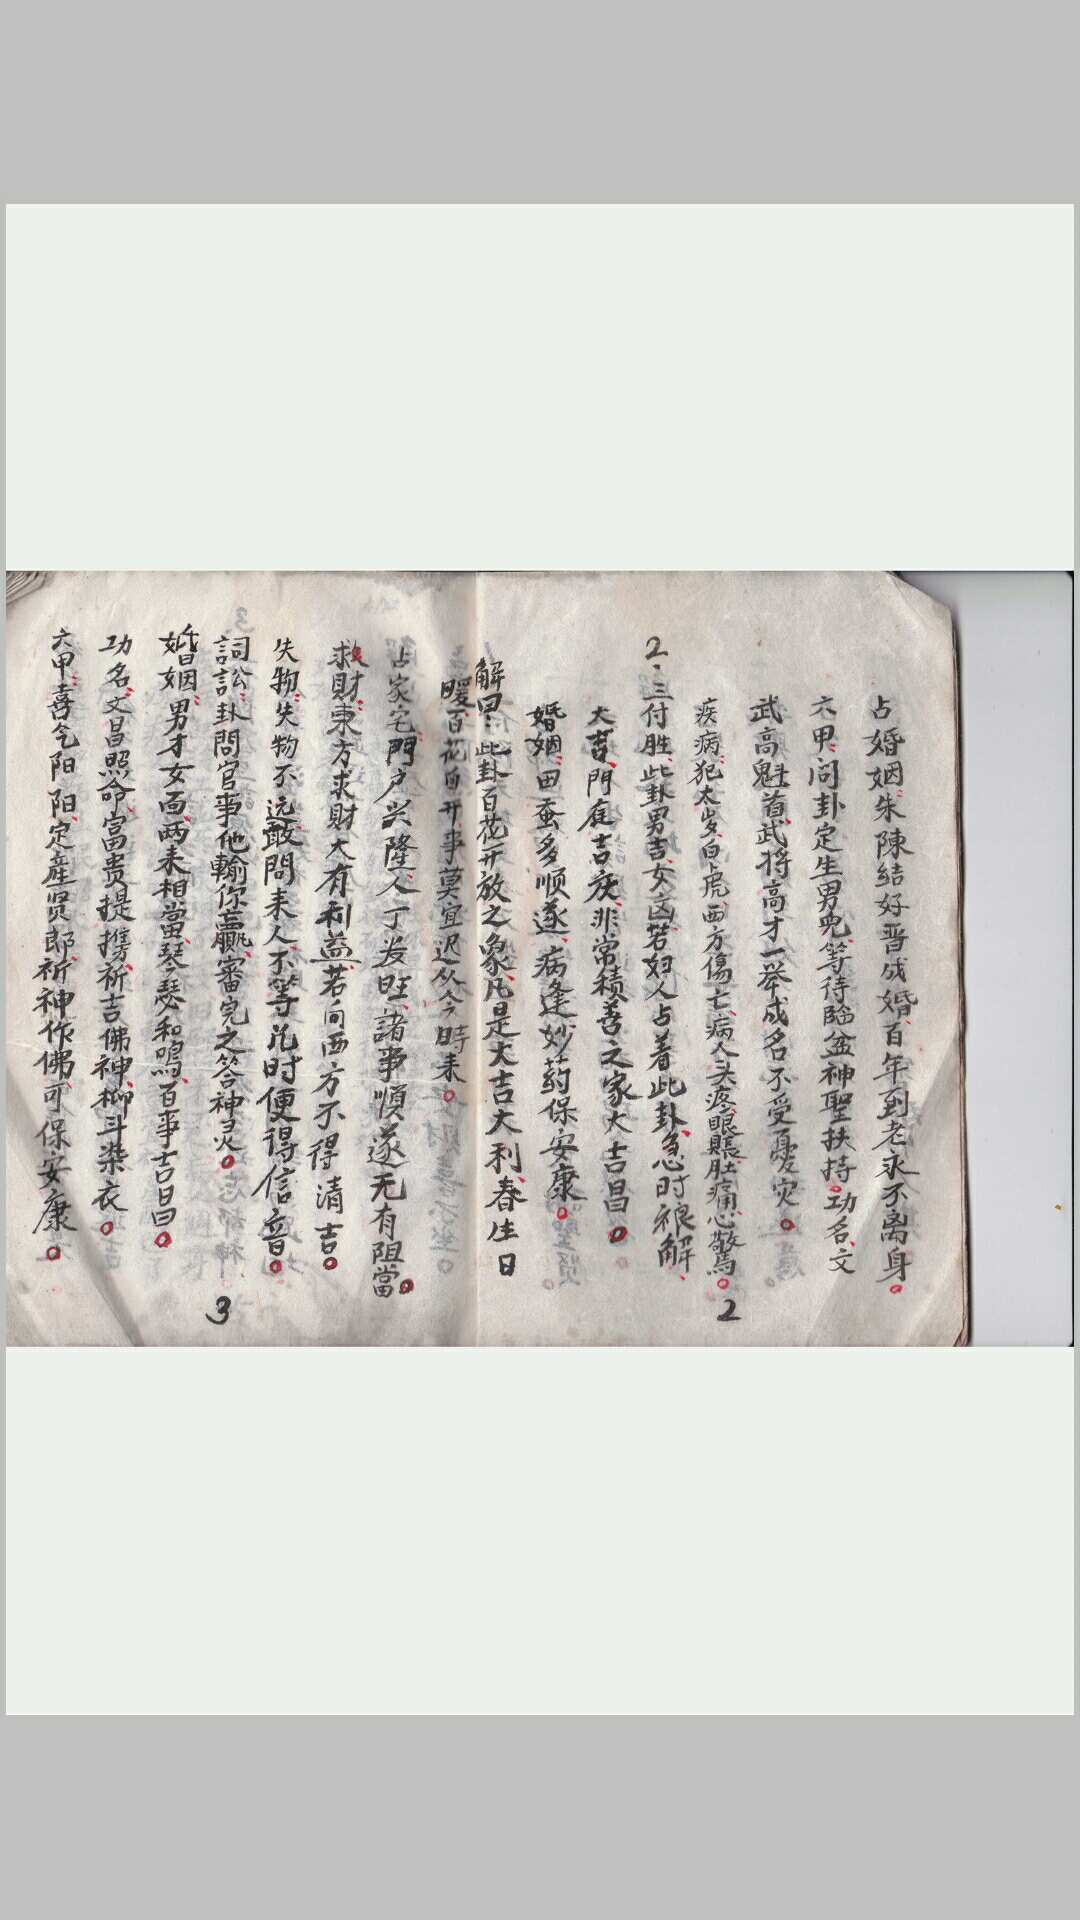 占婚姻、朱陳結好晋成婚百年到老永不离身。
六甲、问卦定生男兒、等待臨盆神聖扶持。功名、文
武高魁首、武将高才一举成名不受憂灾。
疾病、犯太岁白虎、西方傷亡、病人头疼、眼賬肚痛心驚。
2、三付胜、此卦男吉、女凶若妇人占着此卦、急时禳解、
大吉、門庭吉庆、非常積善之家大吉昌。
婚姻、田蚕多顺遂、病逢妙药保安康。
解曰：此卦百花开放之象、凡是大吉大利、春生日
暖、百花自开、事莫宜迟从今時来。
占家宅、門户兴隆、人丁发旺、諸事順遂无有阻當。
求財、東方求財大有利益、若向西方不得清吉。
失物、失物不远散、問来人、不等几时便得信音。
詞訟、卦問官事他輸你赢、審完之答神灵。
婚姻、男才女面、两来相當、琴瑟和鳴、百事吉曰。
功名、文昌照命、富贵提携、祈吉佛神、柳斗染衣。
六甲、喜气阳阳、定産贤郎、祈神作佛、可保安康。
2
3